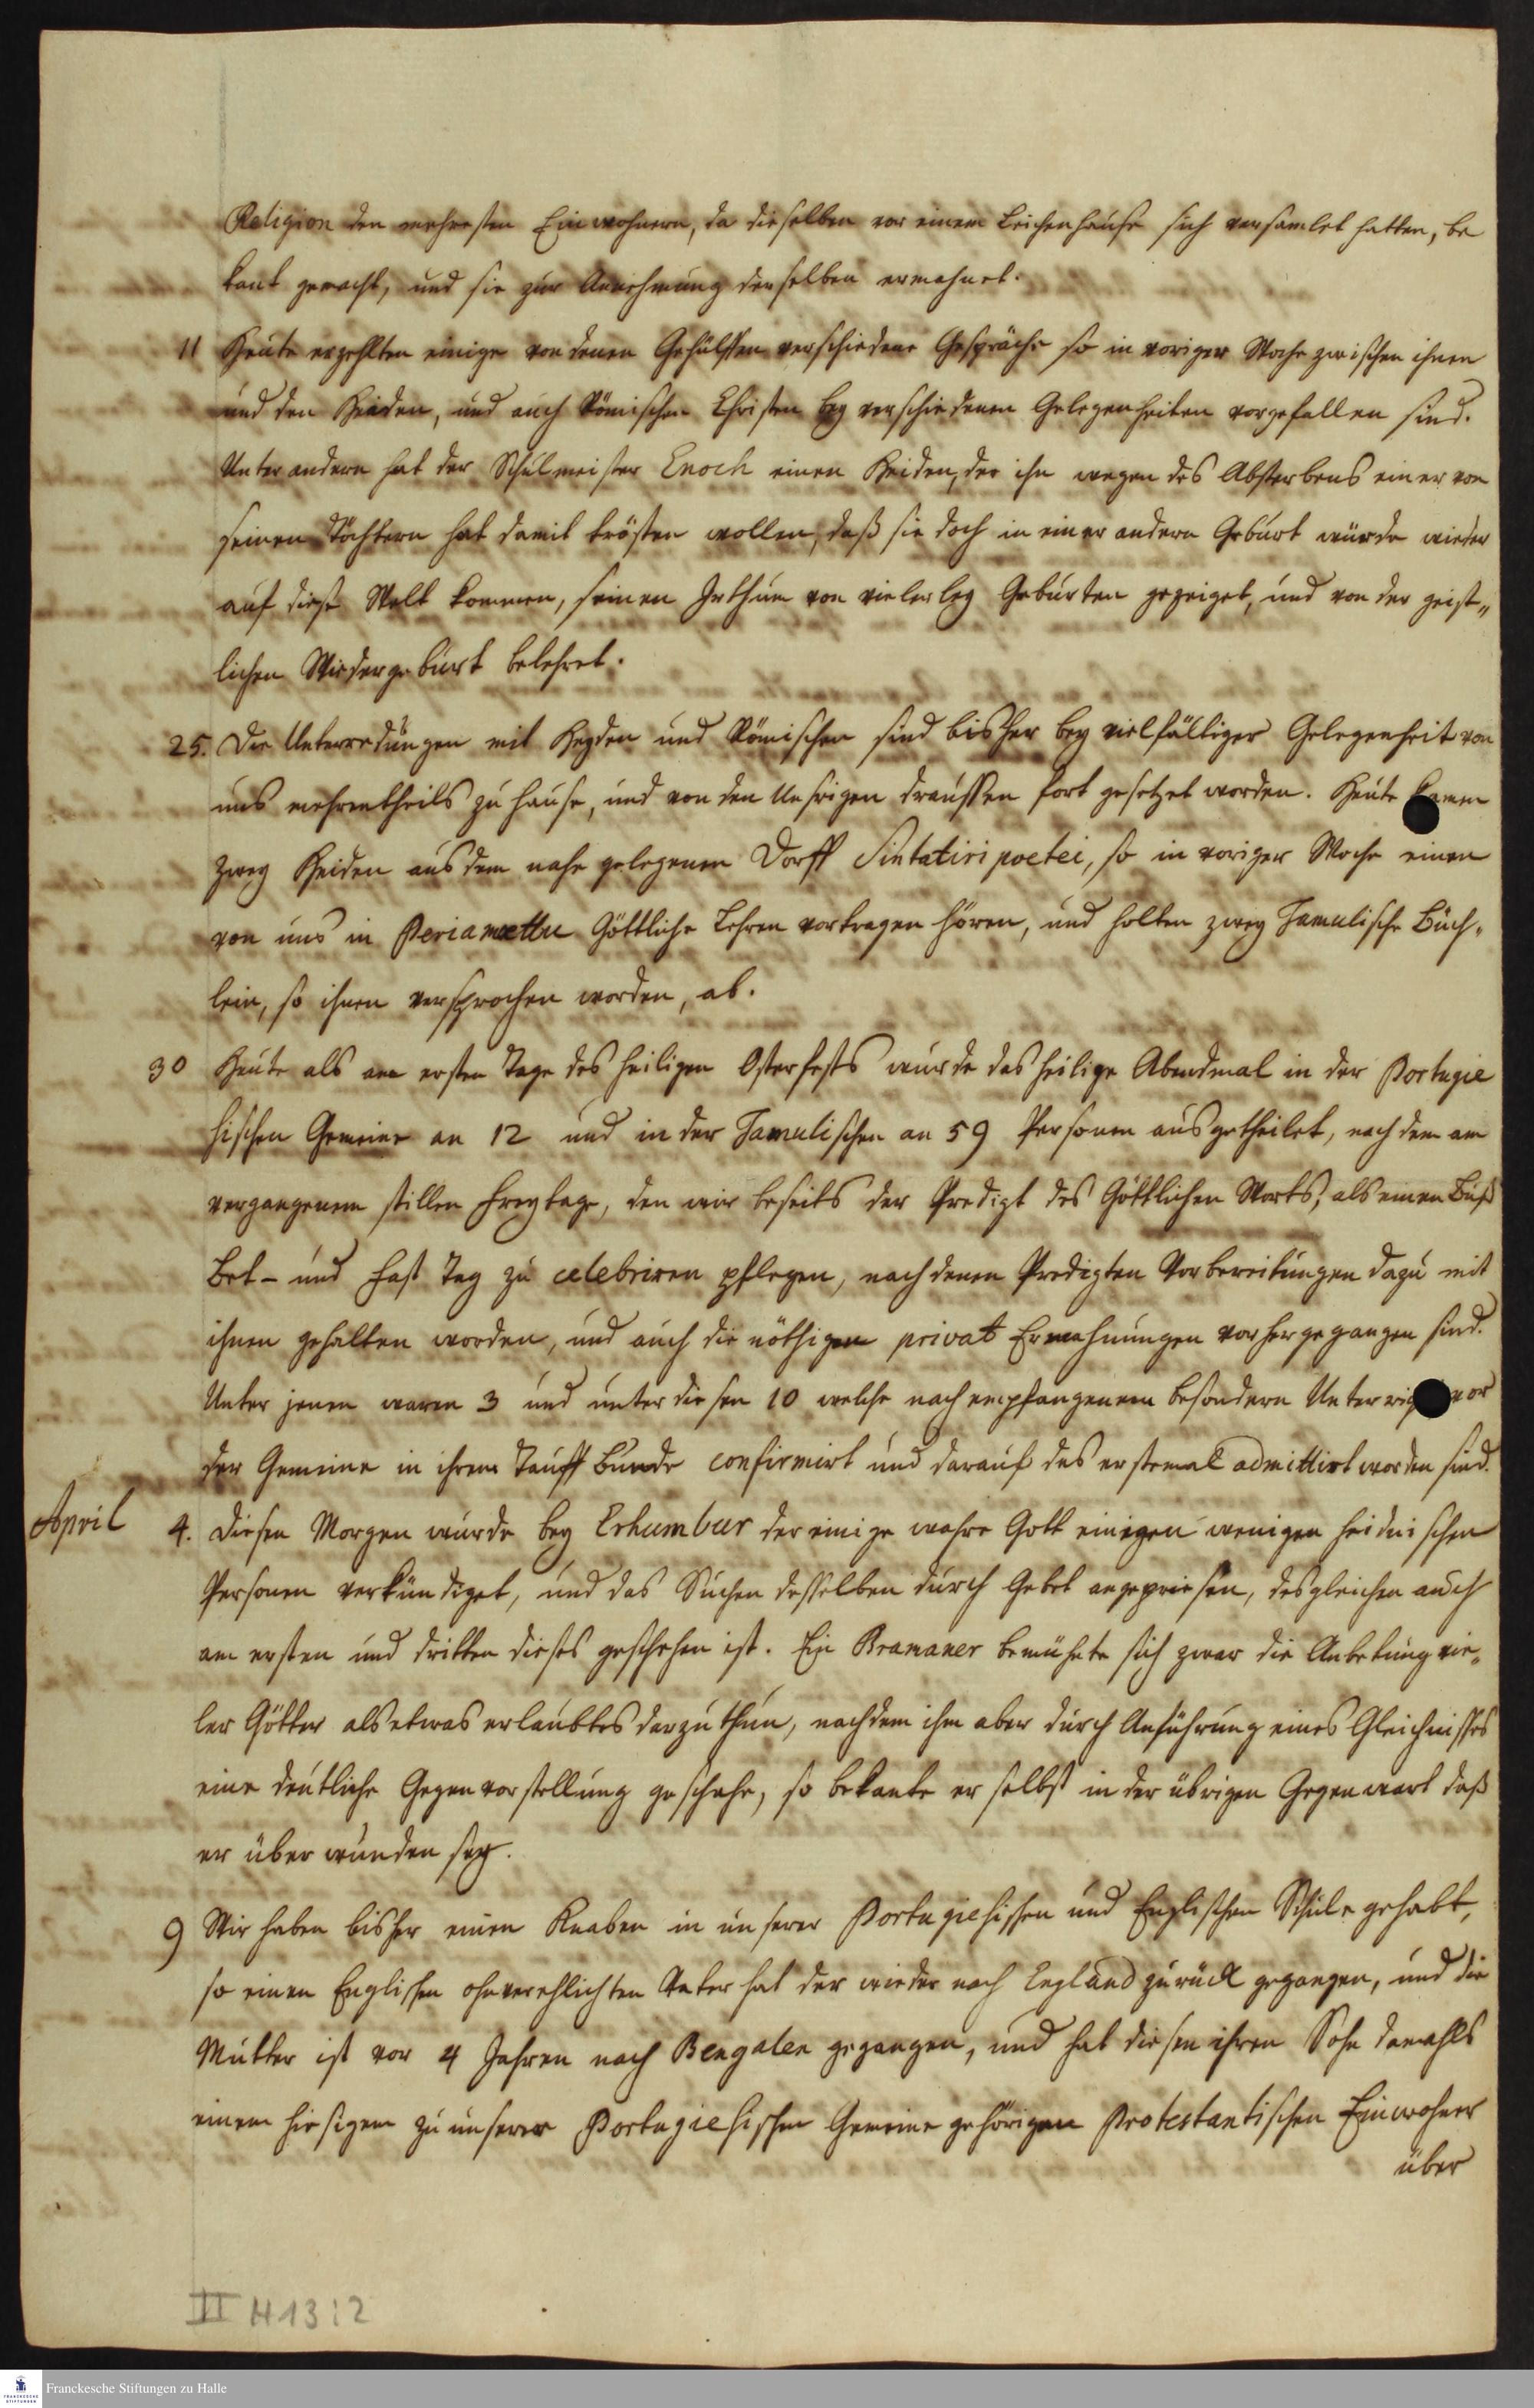 Religion den mehresten Einwohnern, da dieselben vor einem Leichenhause sich versamlet hatten, be
kant gemacht, und sie zur Annehmung derselben ermahnet.
11 Heute erzehlten einige von denen Gehülffen verschiedene Gespräche so in voriger Woche zwischen ihnen
und den Heiden, und auch Römischen Christen bey verschiedenen Gelegenheiten vorgefallen sind.
Unter andern hat der Schulmeister Enoch einen Heiden, der ihn wegen des Absterbens einer von
seinen Töchtern hat damit trösten wollen, daß sie doch in einer andern Geburt würde wieder
auf diese Welt kommen, seinen Irthum von vielerley Geburten gezeiget, und von der geist„
lichen Wiedergeburt belehret.
25. Die Unterredungen mit Heyden und Römischen sind bisher bey vielfältiger Gelegenheit von
uns mehrentheils zu hause, und von den Unsrigen draussen fort gesetzet worden. Heute kamen
zwey Heiden aus dem nahe gelegenen Dorff Sintatiripoetei, so in voriger Woche einen
von uns in Periamættu Göttliche Lehren vortragen hören, und holten zwey Tamulische Büch-
lein, so ihnen versprochen worden, ab.
30 Heute als am ersten Tage des heiligen Osterfests wurde das heilige Abendmal in der Portugie
sischen Gemeine an 12 und in der Tamulischen an 59 Personen ausgetheilet, nach dem am
vergangenem stillen Freytage, den wir beseits der Predigt des Göttlichen Worts, als einen Buß
Bet- und Fast Tag zu celebriren pflegen, nach denen Predigten Vorbereitungen dazu mit
ihnen gehalten worden, und auch die nöthigen privat Ermahnungen vorhergegangen sind.
Unter jenen waren 3 und unter diesen 10 welche nach empfangenem besondern Unterricht vor
der Gemeine in ihrem Tauff Bunde confirmirt und darauf das erstemal admittirt worden sind.
April 4. Diesen Morgen wurde bey Erhumbur der einige wahre Gott einigen wenigen heidnischen
Personen verkündiget, und das Suchen desselben durch Gebet angepriesen, desgleichen auch
am ersten und dritten dieses geschehen ist. Ein Bramaner bemühete sich zwar die Anbetung vie-
ler Götter als etwas erlaubtes darzuthun, nachdem ihm aber durch Anführung eines Gleichnisses
eine deutliche Gegenvorstellung geschahe, so bekante er selbst in der übrigen Gegenwart daß
er überwunden sey.
9 Wir haben bisher einen Knaben in unserer Portugiesischen und Englischen Schule gehabt,
so einen Englischen ohnverehlichten Vater hat der wieder nach England zurück gegangen, und die
Mutter ist vor 4 Jahren nach Bengalen gegangen, und hat diesen ihren Sohn damahls
einem hiesigen zu unserer Portugiesischen Gemeine gehörigen Protestantischen Einwohner
über
II H 13 : 2
Franckesche Stiftungen zu Halle